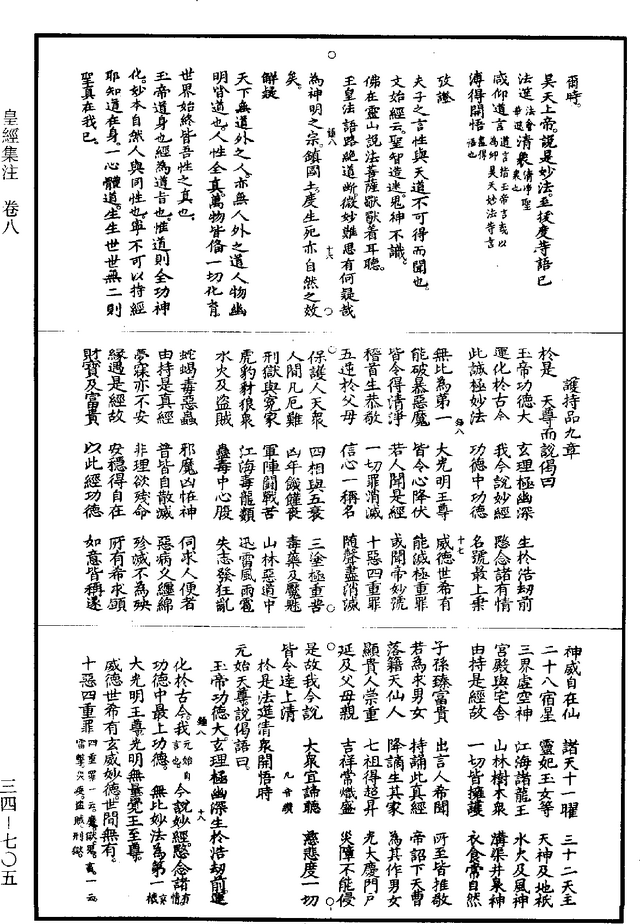 皇經集注 卷八
三四—七〇五
爾時。
昊天上帝。說是妙法。至投度等語已
法筵清衆
咸仰道言
溥得開悟
攷證
夫子之言性與天道不可得而聞也。
文始經云。聖智造迷鬼神不識。
佛在靈山說法菩薩獸獸着耳聽。
玉皇法語路絶道斷微妙難思有何疑哉
為神明之宗鎮國土度生死亦自然之效
矣。
解疑
天下無道外之人亦無人外之道人物幽
明皆道也。人性全真萬物皆備一切化育
世界始終皆吾性之真也。
玉帝道身也經為道旨也。惟道則全功神
化。妙本自然人與同性也。寧不可以持經
耶知道在身。一心體道。生生世世無二則
聖真在我已。
護持品九章
於是 天尊而說偈曰
玉帝功德大 玄理極幽深 生於浩劫前
運化於古今 我今說妙經 愍念諸有情
此誠極妙法 功德中功德 名號最上乘
無比為第一 大光明王尊 威德世希有
能破暴惡魔 皆令心降伏 能滅極重罪
皆令得清淨 若人聞是經 或聞帝妙號
稽首生恭敬 一切罪消滅 十惡四重罪
五逆於父母 信心一稱名 隨聲盡消滅
保護人天衆 四相與五衰 三塗極重苦
人間凡厄難 凶年饑饉喪 毒藥及魘魅
刑獄與冤家 軍陣鬪戰苦 山林惡道中
虎豹豺狼衆 江海毒龍類 迅雷風雨雹
水火及盜賊 蠱毒中心股 失志發狂亂
蛇蝎毒惡蟲 邪魔凶怪神 伺求人便者
由持是真經 普皆自散滅 惡病久纏綿
夢寐亦不安 非理欲殘命 殄滅不為殃
緣遇是經故 安穩得自在 所有希求願
財寶及富貴 以此經功德 如意皆稱遂
神威自在仙 諸天十一曜 三十二天王
二十八宿星 靈妃玉女等 天神及地祇
三界虛空神 江海諸龍王 水火及風神
宮殿與宅舍 山林樹木衆 溝渠井泉神
由持是經故 一切皆擁護 衣食常自然
子孫臻富貴 出言人希聞 所至皆推敬
若為求男女 持誦此真經 帝詔下天曹
落籍天仙人 降謫生其家 為其作男女
顯貴人崇重 七祖得超昇 光大慶門戶
延及父母親 吉祥常熾盛 災障不能侵
是故我今說 大衆宜諦聽 慈悲度一切
皆令達上清
於是法筵清衆開悟時
元始天尊。說偈語曰。
玉帝功德大。玄理極幽深生於浩劫前運
化於古今。我今說妙經。愍念諸有情
功德中最上功德。 無比妙法為第一
大光明王尊。光明無量覺王至尊。
威德世希有玄威妙德。世間無有。
十惡四重罪